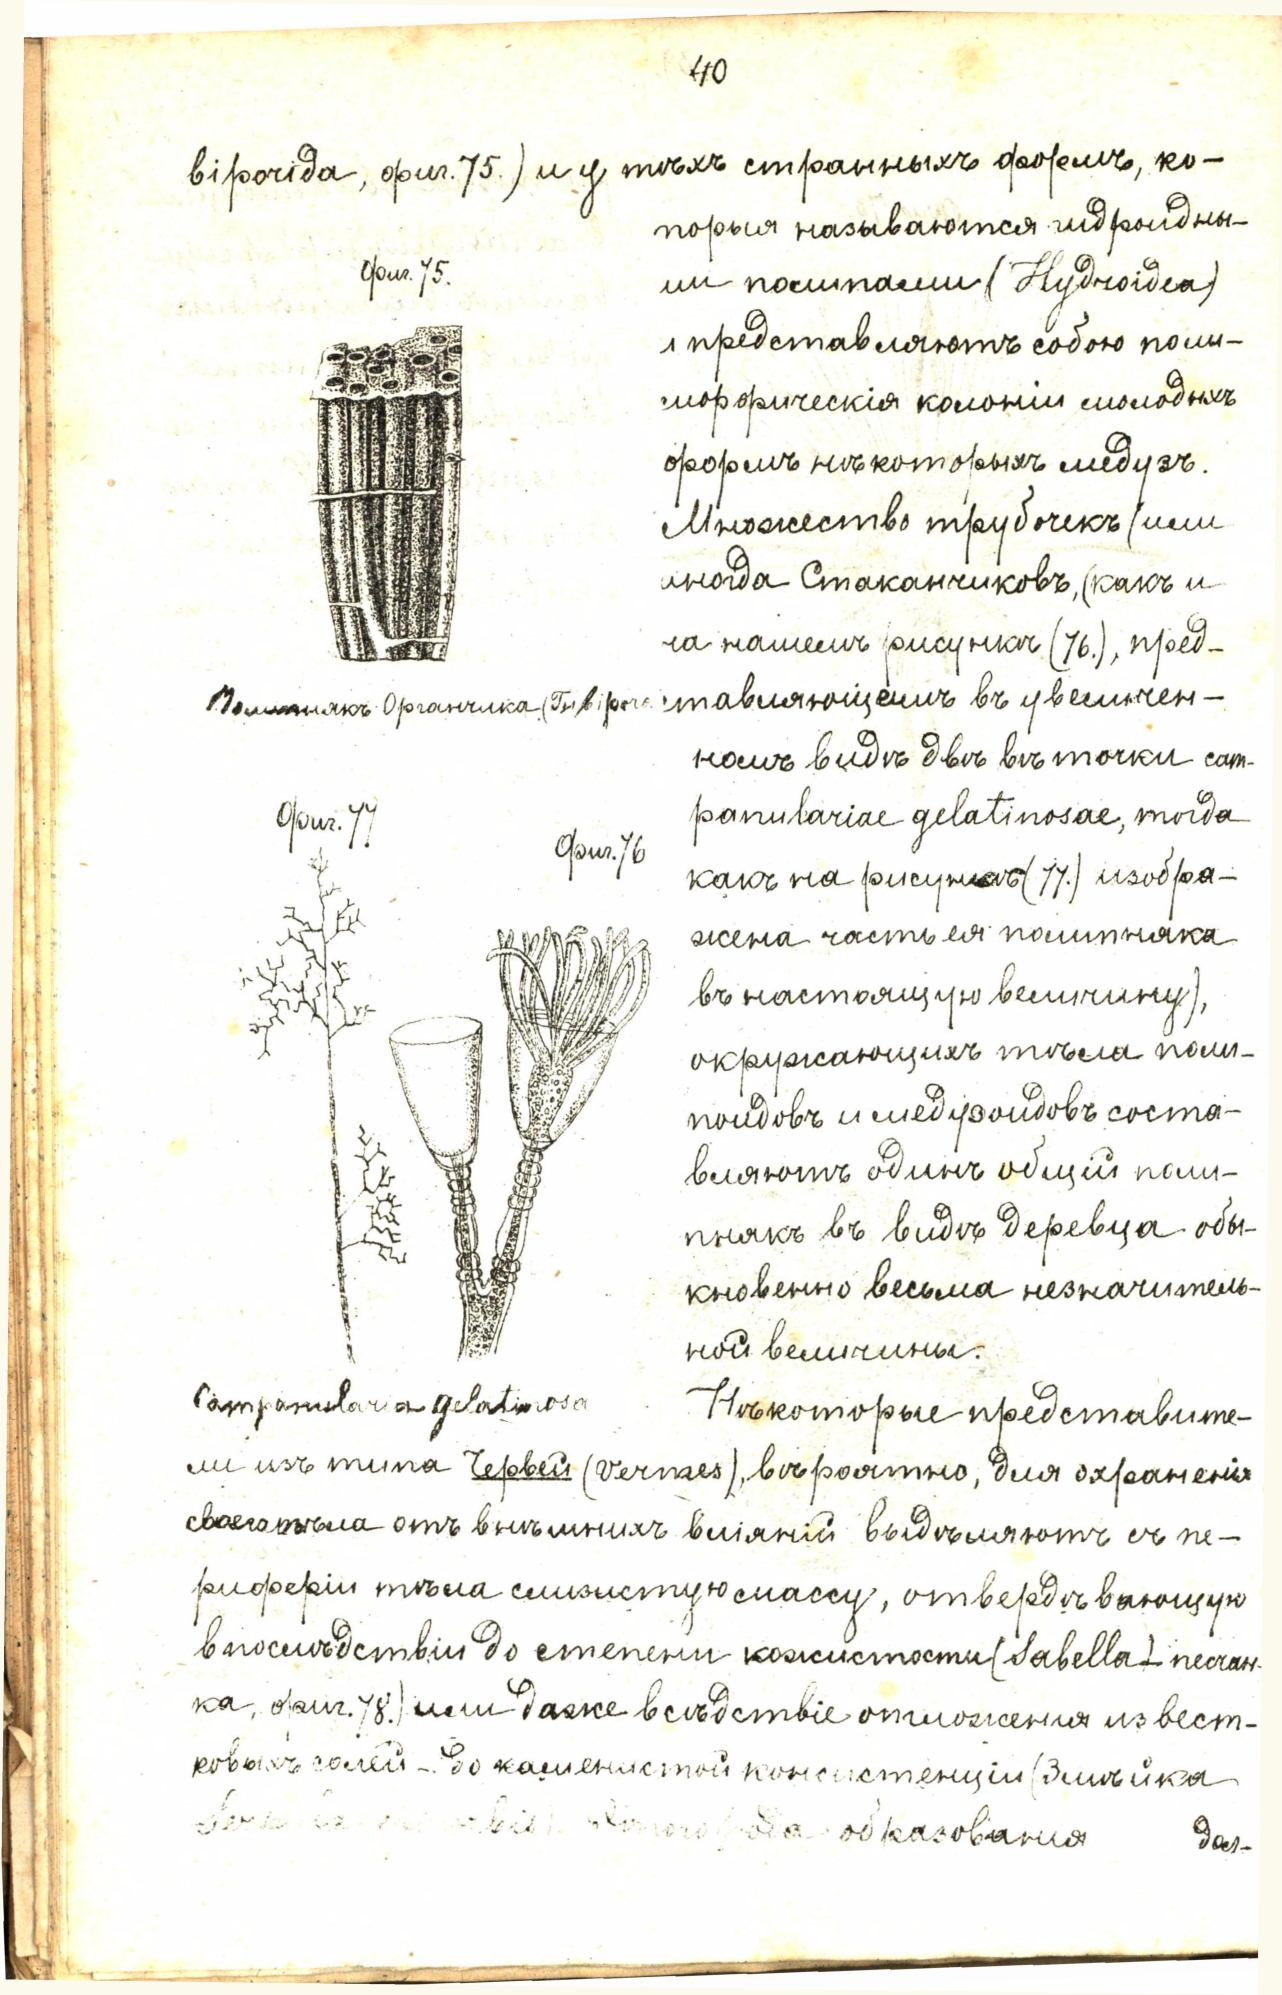 40
biporida, фиг. 75.) и у тѣхъ странныхъ формъ, ко-
торыя называются гидроидны-
Фиг. 75.
ми полипами (Hydroidea)
и представляютъ собою поли-
морфическія колоніи молодыхъ
формъ нѣкоторыхъ медузъ.
Множество трубочекъ (или
иногда Стаканчиковъ, (какъ и
на нашемъ рисункѣ (76.), пред-
Полипнякъ Органчика (Tubipora
ставляющемъ въ увеличен-
номъ видѣ двѣ вѣточки cam-
Фиг. 77
panulariae gelatinosae, тогда
Фиг. 76
какъ на рисункѣ (77.) изобра-
жена часть ея полипняка
въ настоящую величину),
окружающихъ тѣла поли-
поидовъ и медузоидовъ соста-
вляютъ одинъ общій поли-
пнякъ въ видѣ деревца обы-
кновенно весьма незначитель-
ной величины.
Campanularia gelatinosa
Нѣкоторые представите-
ли изъ типа Червей (Vermes), вѣроятно, для охраненія
своего тѣла отъ внѣшнихъ вліяній выдѣляютъ съ пе-
риферіи тѣла слизистую массу, отвердѣвающую
впослѣдствіи до степени кожистости (Sabella - песчан-
ка, фиг. 78.) или даже вслѣдствіе отложенія извест-
ковыхъ солей - до каменистой консистенціи (Змѣйка
рода образованія
дол-